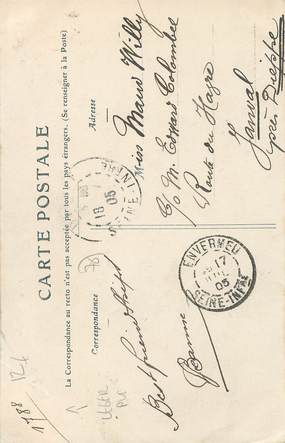 CARTE POSTALE
La Correspondance au recto n'est pas acceptée par tous les pays étrangers. (Se renseigner à la Poste)
Correspondance
Adresse
Best friendships
Jeanne
Miss Maud Willy
c/o M. Edward Colombel
Route du Hazre
Janval
près Dieppe
ENVERMEU
17
05
SEINE-INFRE
18
05
78
1788